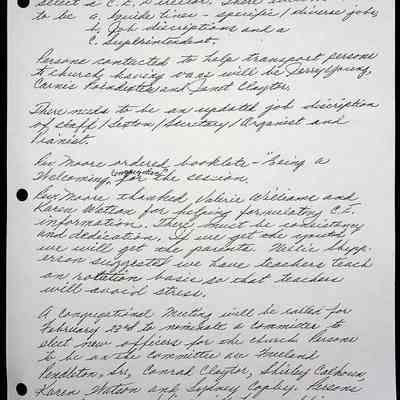 select a C.E. Director. There
to be a. Guide lines - specific / diverse jobs,
b. Job discriptions and a
c. Suprintendent.
Persons contacted to help transport persons
to church having vans will be Jerry Young,
and Janet Claytor.
There needs to be an updated job discription
of staff / Sexton / Secretary / Organist and
Pianist.
Rev Moore ordered booklets - "Being a
Welcoming Congregation" for the session.
Rev Moore thanked Valerie Williams and
Karen Watson for helping formulating C.E.
information. There must be consistency
and dedication. If we get the youth
we will get the parents. Nellie Shepp-
erson suggested we have teachers teach
on rotation basis so that teachers
will avoid stress.
A Congregational Meeting will be called for
February 23rd to nominate a committee to
elect new officers for the church. Persons
to be on the committee are Freeland
Pendleton, Sr., Conrad Claytor, Shirley Calhoun,
Karen Watson and Sydney Persons